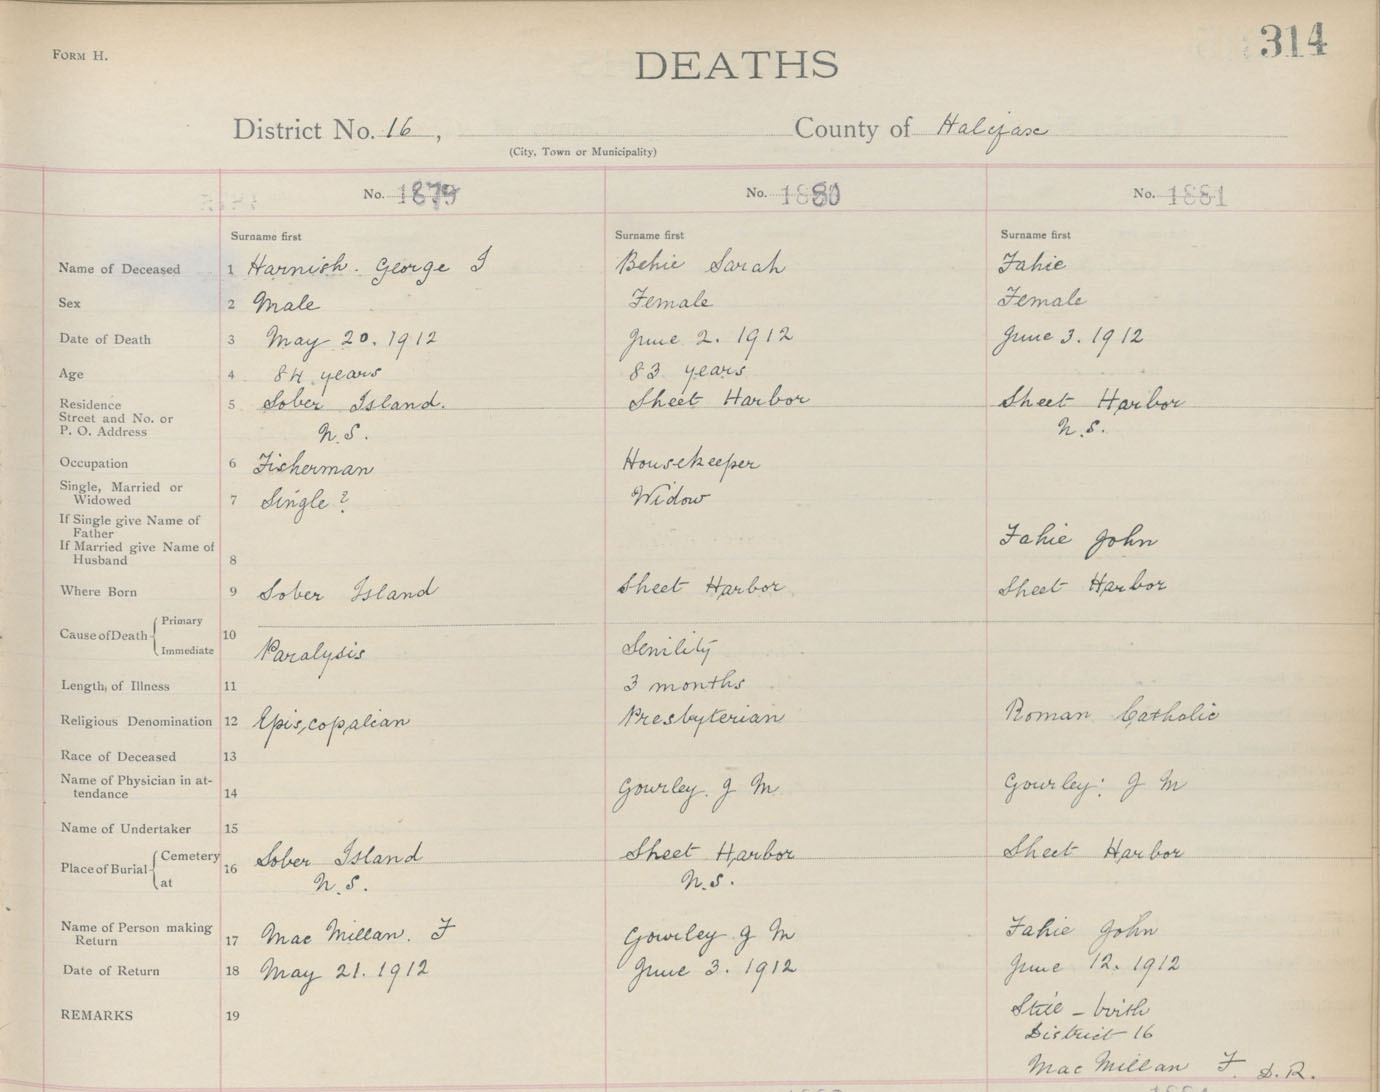 Form H.
314
DEATHS
District No. 16, County of Halifax
(City, Town or Municipality)
No. 1879 No. 1880 No. 1881
Surname first Surname first Surname first
Name of Deceased 1 Harnish. George I Behie Sarah Fahie
Sex 2 Male Female Female
Date of Death 3 May 20. 1912 June 2. 1912 June 3. 1912
Age 4 84 years 83 years
Residence 5 Sober Island. Sheet Harbor Sheet Harbor
Street and No. or
P. O. Address N.S. N.S.
Occupation 6 Fisherman Housekeeper
Single, Married or
Widowed 7 Single ? Widow
If Single give Name of
Father Fahie John
If Married give Name of
Husband 8
Where Born 9 Sober Island Sheet Harbor Sheet Harbor
Primary
Cause of Death 10
Immediate Paralysis Senility
Length of Illness 11 3 months
Religious Denomination 12 Episcopalian Presbyterian Roman Catholic
Race of Deceased 13
Name of Physician in at-
tendance 14 Gourley. J M Gourley: J M
Name of Undertaker 15
Cemetery Sober Island Sheet Harbor Sheet Harbor
Place of Burial 16
at N.S. N.S.
Name of Person making
Return 17 Mac Millan. F Gourley J M Fahie John
Date of Return 18 May 21. 1912 June 3. 1912 June 12. 1912
REMARKS 19 Still - birth
District 16
Mac Millan F. D.R.